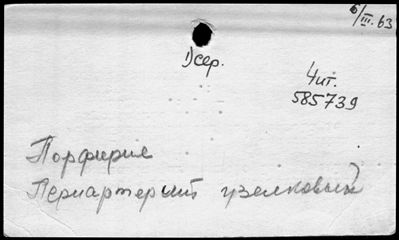 6/III.63
Dсер.
Чит.
585739
Порфирия
Периартериит узелковый